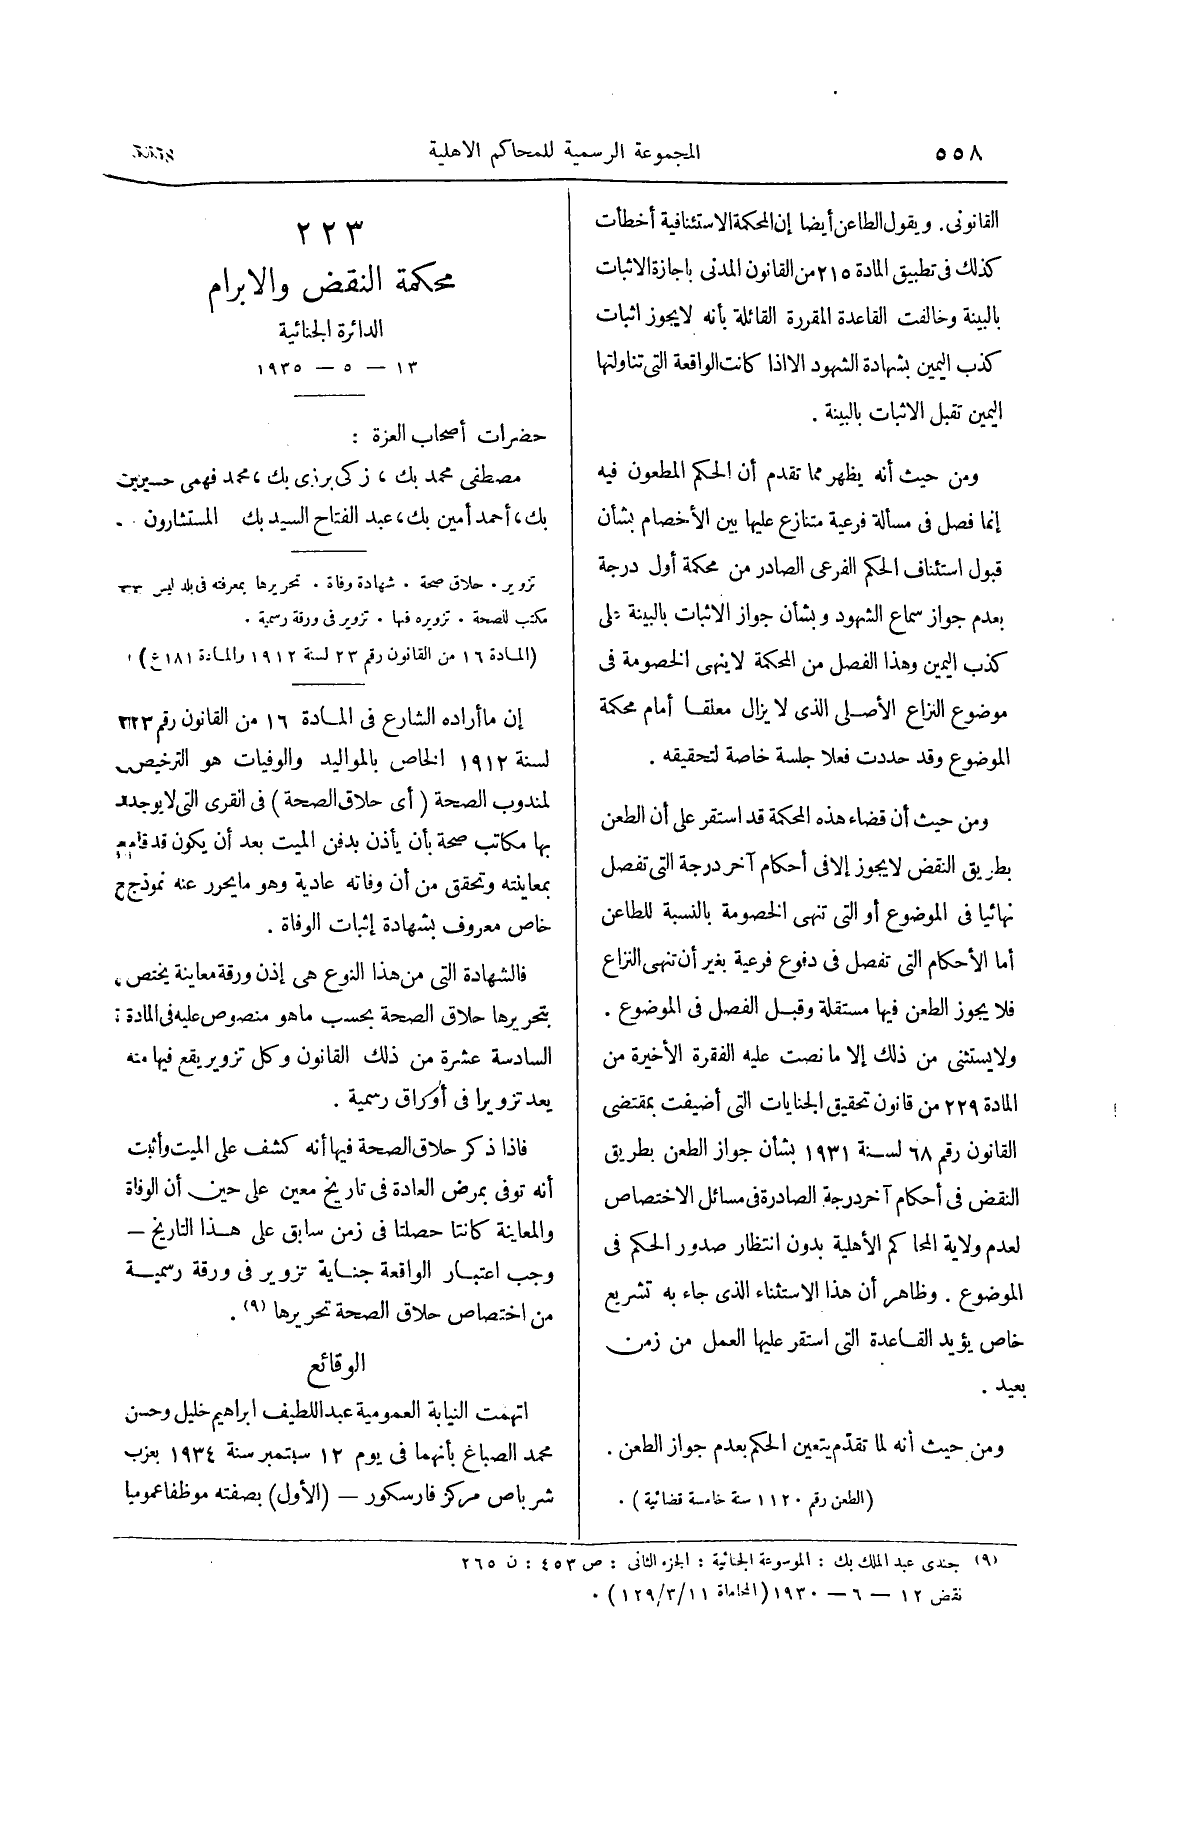 ٥٥٨
المجموعة الرسمية للمحاكم الاهلية
القانونى. ويقول الطاعن أيضا إن المحكمة الاستئنافية أخطأت
كذلك فى تطبيق المادة ٢١٥ من القانون المدنى باجازة الاثبات
بالبينة وخالفت القاعدة المقررة القائلة بأنه لايجوز اثبات
كذب اليمين بشهادة الشهود الا اذا كانت الواقعة التى تناولتها
اليمين تقبل الاثبات بالبينة .
ومن حيث أنه يظهر مما تقدم أن الحكم المطعون فيه
إنما فصل فى مسألة فرعية متنازع عليها بين الأخصام بشأن
قبول استئناف الحكم الفرعى الصادر من محكمة أول درجة
بعدم جواز سماع الشهود وبشأن جواز الاثبات بالبينة على
كذب اليمين وهذا الفصل من المحكمة لاينهى الخصومة فى
موضوع النزاع الأصلى الذى لايزال معلقا أمام محكمة
الموضوع وقد حددت فعلا جلسة خاصة لتحقيقه .
ومن حيث أن قضاء هذه المحكمة قد استقر على أن الطعن
بطريق النقض لايجوز إلافى أحكام آخر درجة التى تفصل
نهائيا فى الموضوع أو التى تنهى الخصومة بالنسبة للطاعن
أما الأحكام التى تفصل فى دفوع فرعية بغير أن تنهى النزاع
فلا يجوز الطعن فيها مستقلة وقبل الفصل فى الموضوع .
ولايستثنى من ذلك إلا ما نصت عليه الفقرة الأخيرة من
المادة ٢٢٩ من قانون تحقيق الجنايات التى أضيفت بمقتضى
القانون رقم ٦٨ لسنة ١٩٣١ بشأن جواز الطعن بطريق
النقض فى أحكام آخر درجة الصادرة فى مسائل الاختصاص
لعدم ولاية المحاكم الأهلية بدون انتظار صدور الحكم فى
الموضوع . وظاهر أن هذا الاستثناء الذى جاء به تشريع
خاص يؤيد القاعدة التى استقر عليها العمل من زمن
بعيد .
ومن حيث أنه لما تقدّم يتعين الحكم بعدم جواز الطعن .
(الطعن رقم ١١٢٠ سنة خامسة قضائية ) .
٢٢٣
محكمة النقض والابرام
الدائرة الجنائية
١٣ — ٥ — ١٩٣٥
حضرات أصحاب العزة :
مصطفى محمد بك ، زكى برزى بك ، محمد فهمى حسين
بك ، أحمد أمين بك ، عبد الفتاح السيد بك المستشارون .
تزوير . حلاق صحة . شهادة وفاة . تحريرها بمعرفته فى بلد ليس
مكتب للصحة . تزويره فيها . تزوير فى ورقة رسمية .
(المادة ١٦ من القانون رقم ٢٣ لسنة ١٩١٢ والمادة ١٨١ع)
إن ماأراده الشارع فى المادة ١٦ من القانون رقم ٢٣
لسنة ١٩١٢ الخاص بالمواليد والوفيات هو الترخيص
لمندوب الصحة ( أى حلاق الصحة ) فى القرى التى لايوجد
بها مكاتب صحة بأن يأذن بدفن الميت بعد أن يكون قد قام
بمعاينته وتحقق من أن وفاته عادية وهو مايحرر عنه نموذج
خاص معروف بشهادة إثبات الوفاة .
فالشهادة التى من هذا النوع هى إذن ورقة معاينة يختص
بتحريرها حلاق الصحة بحسب ماهو منصوص عليه فى المادة
السادسة عشرة من ذلك القانون وكل تزوير يقع فيها منه
يعد تزويرا فى أوراق رسمية .
فاذا ذكر حلاق الصحة فيها أنه كشف على الميت وأثبت
أنه توفى بمرض العادة فى تاريخ معين على حين أن الوفاة
والمعاينة كانتا حصلتا فى زمن سابق على هذا التاريخ —
وجب اعتبار الواقعة جناية تزوير فى ورقة رسمية
من اختصاص حلاق الصحة تحريرها (٩) .
الوقائع
اتهمت النيابة العمومية عبد اللطيف ابراهيم خليل وحسن
محمد الصباغ بأنهما فى يوم ١٢ سبتمبر سنة ١٩٣٤ بعزب
شرباص مركز فارسكور — (الأول) بصفته موظفا عموميا
(٩) جندى عبد الملك بك : الموسوعة الجنائية : الجزء الثانى : ص ٤٥٣ : ن ٢٦٥
نقض ١٢ — ٦ — ١٩٣٠ (المحاماة ١٢٩/٣/١١) .